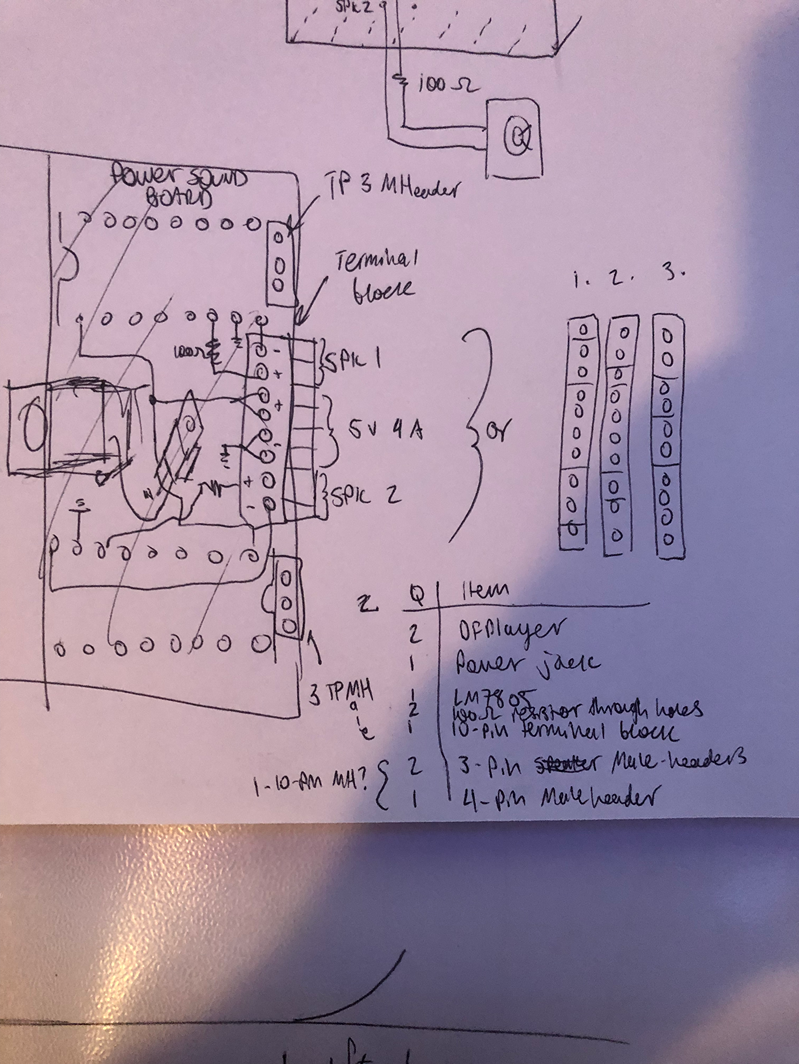 SPK2
100Ω
Power sound
BOARD
TP 3 MHeader
Terminal
block
1. 2. 3.
100Ω
-
+
SPK 1
+
-
5V 4A
or
+
-
SPK 2
2 Q Item
2 DFPlayer
1 Power jack
1 LM7805
2 100Ω resistor through holes
1 10-pin terminal block
3 TPMH
a
l
e
1-10-pin MH? 2 3-pin Male-headers
1 4-pin Male header